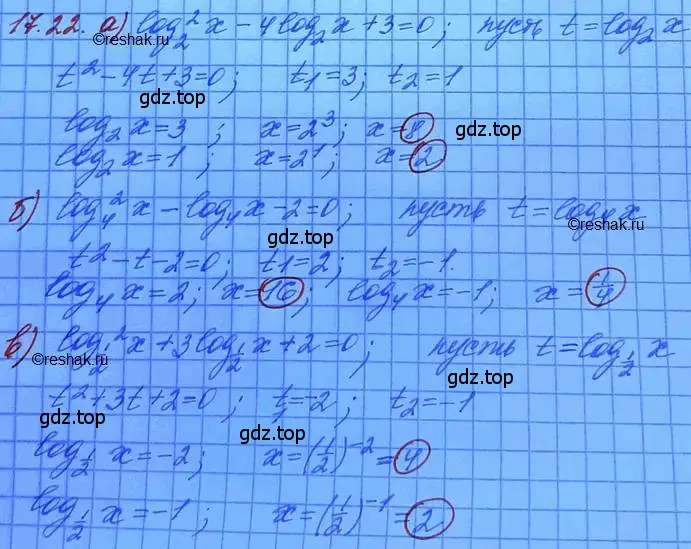 17.22. а) log₂² x − 4 log₂ x + 3 = 0; пусть t = log₂ x
©reshak.ru
t² − 4t + 3 = 0; t₁ = 3; t₂ = 1
gdz.top
log₂ x = 3; x = 2³; x = 8
gdz.top
log₂ x = 1; x = 2¹; x = 2
б) log₄² x − log₄ x − 2 = 0; пусть t = log₄ x
©reshak.ru
gdz.top
t² − t − 2 = 0; t₁ = 2; t₂ = −1.
log₄ x = 2; x = 16; log₄ x = −1; x = 1/4
в) log½² x + 3 log½ x + 2 = 0; пусть t = log½ x
©reshak.ru
gdz.top
t² + 3t + 2 = 0; t₁ = −2; t₂ = −1
gdz.top
gdz.top
log½ x = −2; x = (1/2)⁻² = 4
log½ x = −1; x = (1/2)⁻¹ = 2